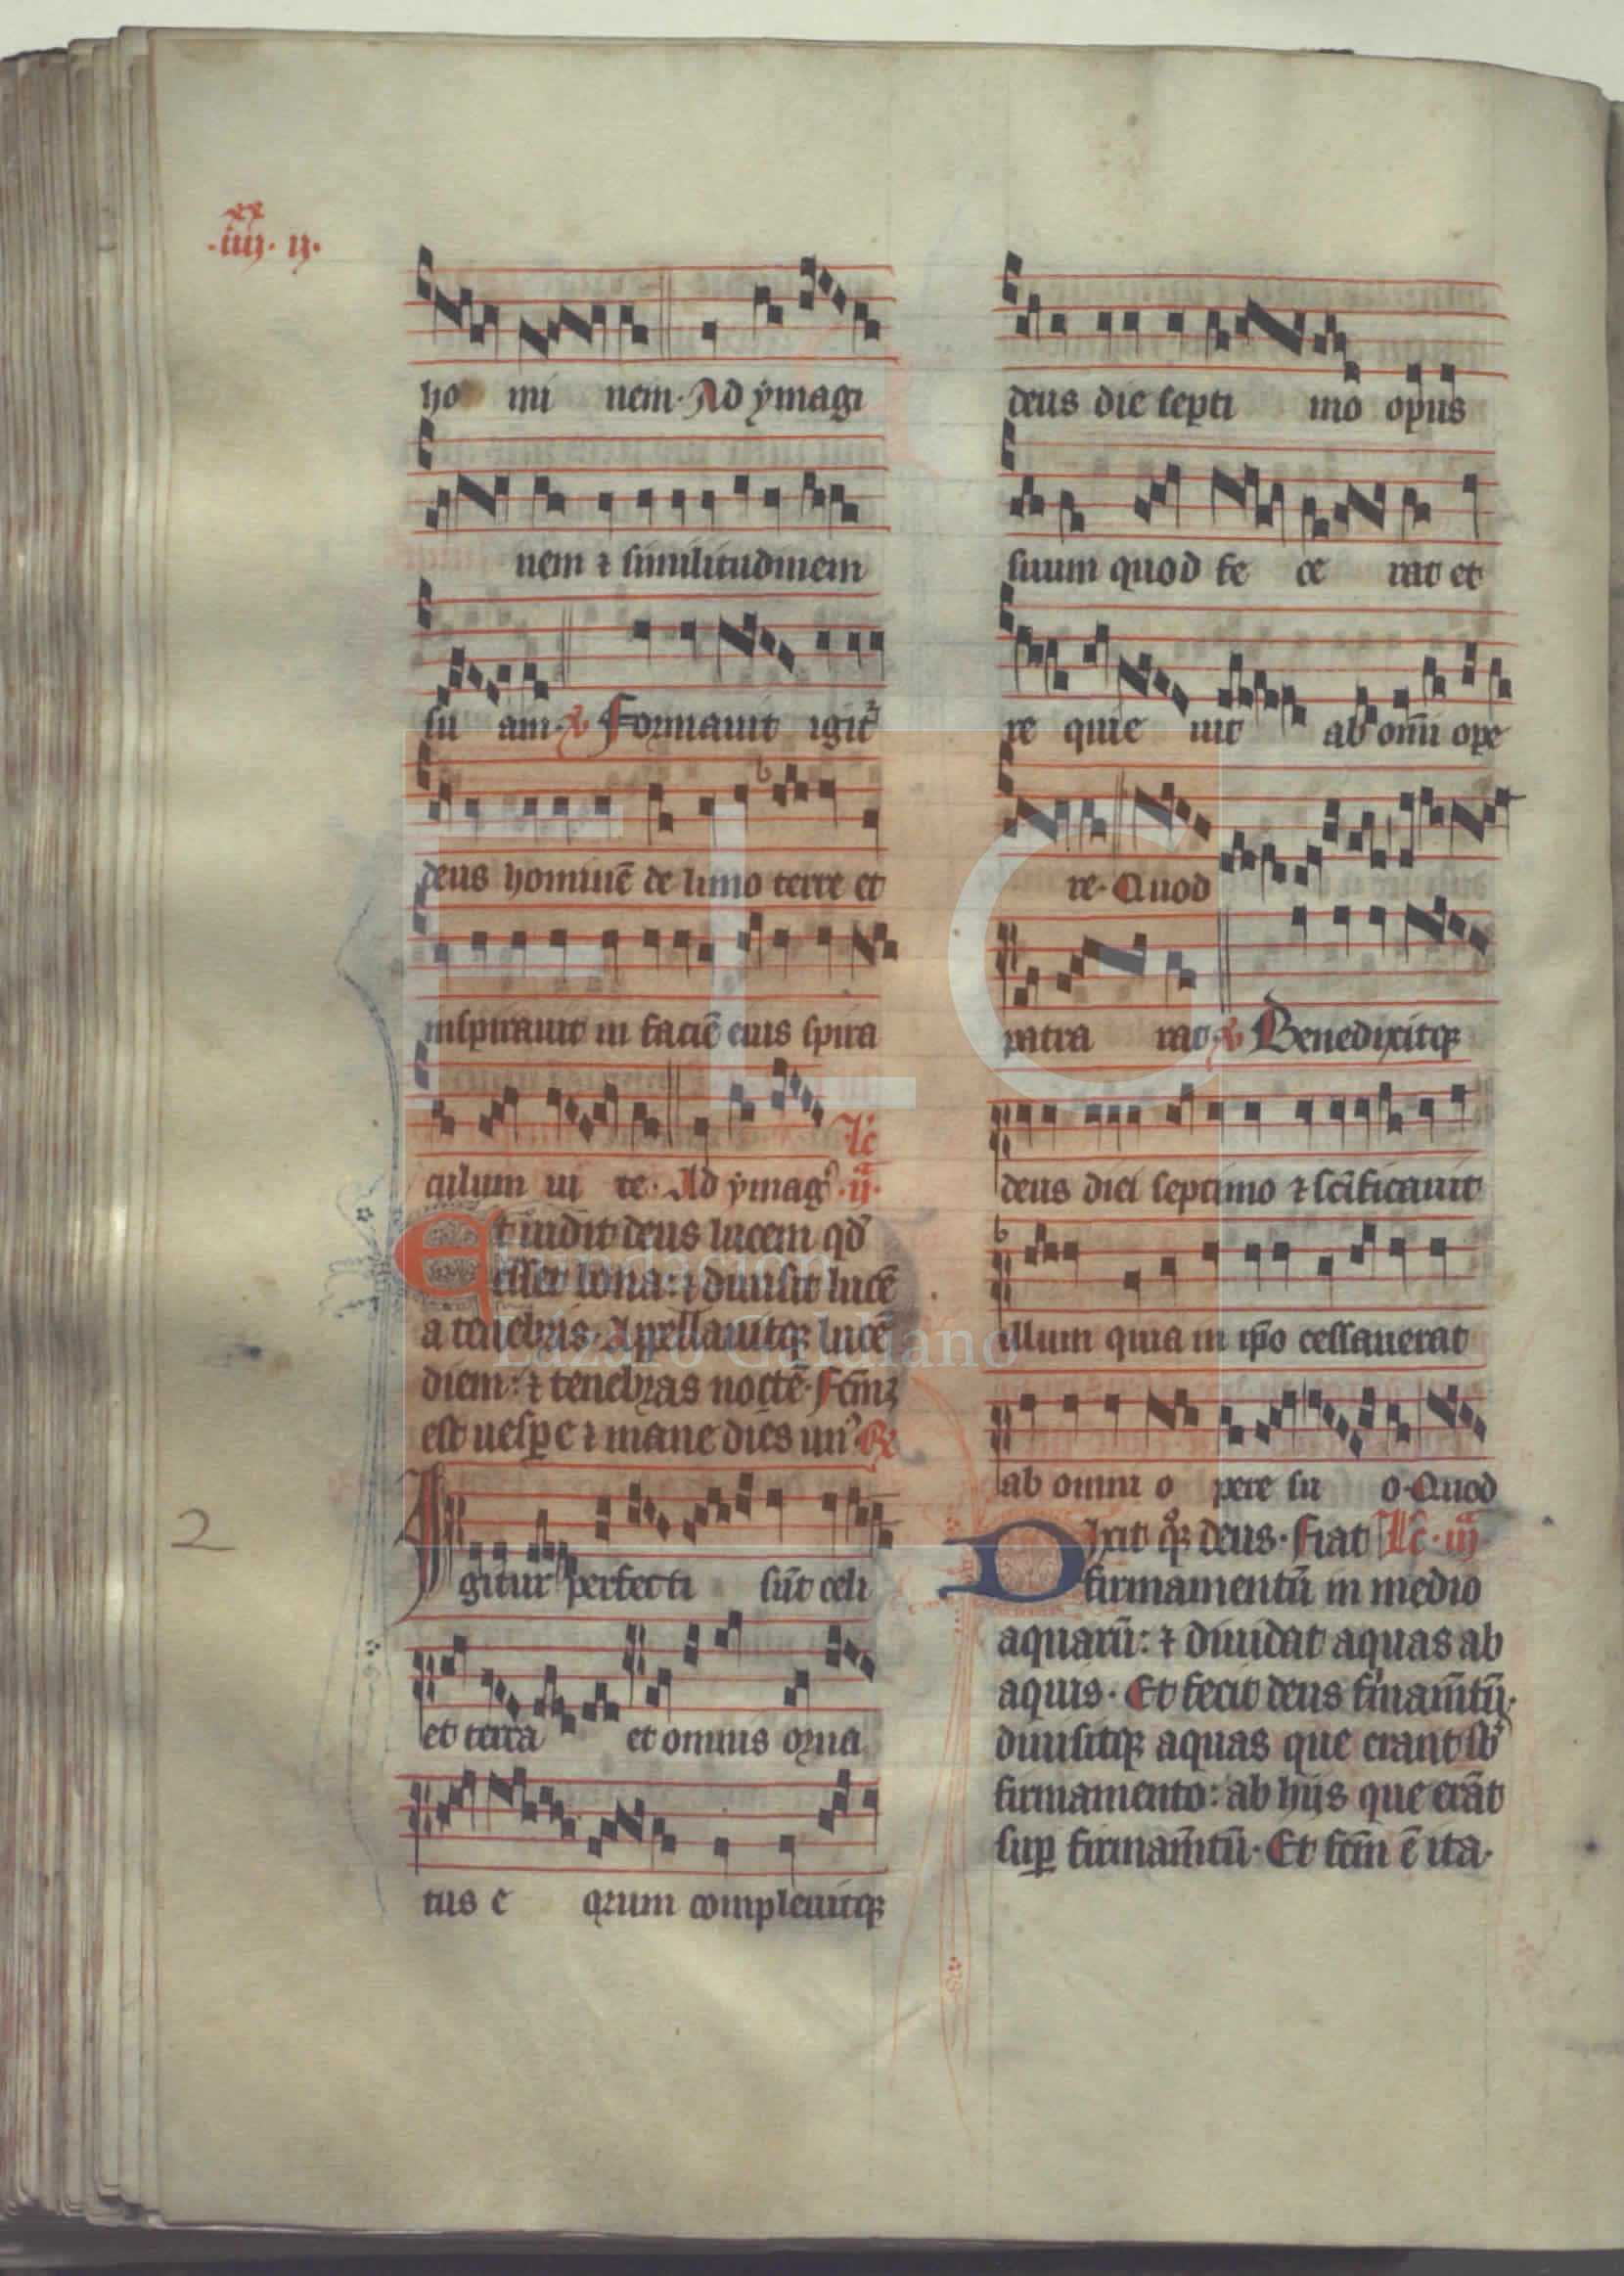 xx
.iiij. ij.
ho mi nem. Ad ymagi
nem ⁊ similitudinem
su am. V Formauit igit᷑
deus hominē de limo terre et
inspirauit in faciē eius spira
culum ui te. Ad ymag̾. Lc̄ .ija.
Et uidit deus lucem qd̾
esset bona: ⁊ diuisit lucē
a tenebris. Appellauitqꝫ lucē
diem: ⁊ tenebras noctē. Fc̄mꝫ
est uesꝑe ⁊ mane dies un᷒. R
Igitur perfecti sūt celi
et terra et omnis orna
tus e orum compleuitqꝫ
deus die septi mo opus
suum quod fe ce rat et
re quie uit ab om̄i ope
re. Quod
patra rat. V Benedixitqꝫ
deus diei septimo ⁊ sc̄ificauit
illum quia in ip̄o cessauerat
ab omni o pere su o. Quod
Dixit qͦꝫ deus. Fiat Lc̄. iija
firmamentū in medio
aquarū: ⁊ diuidat aquas ab
aquis. Et fecit deus firmam̄tū.
diuisitqꝫ aquas que erant sb̾
firmamento: ab hijs que erāt
suꝑ firmam̄tū. Et fc̄m ē ita.
2
FLG
Fundación
Lázaro Galdiano